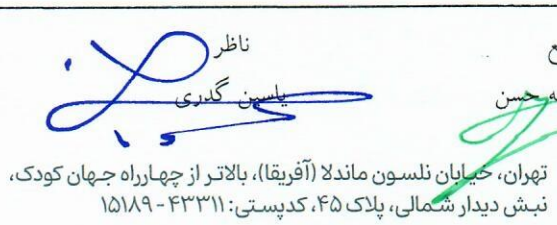 ناظر
ه حسن یاسین گدری
تهران، خیابان نلسون ماندلا (آفریقا)، بالاتر از چهارراه جهان کودک،
نبش دیدار شمالی، پلاک ۴۵، کدپستی: ۴۳۳۱۱ - ۱۵۱۸۹